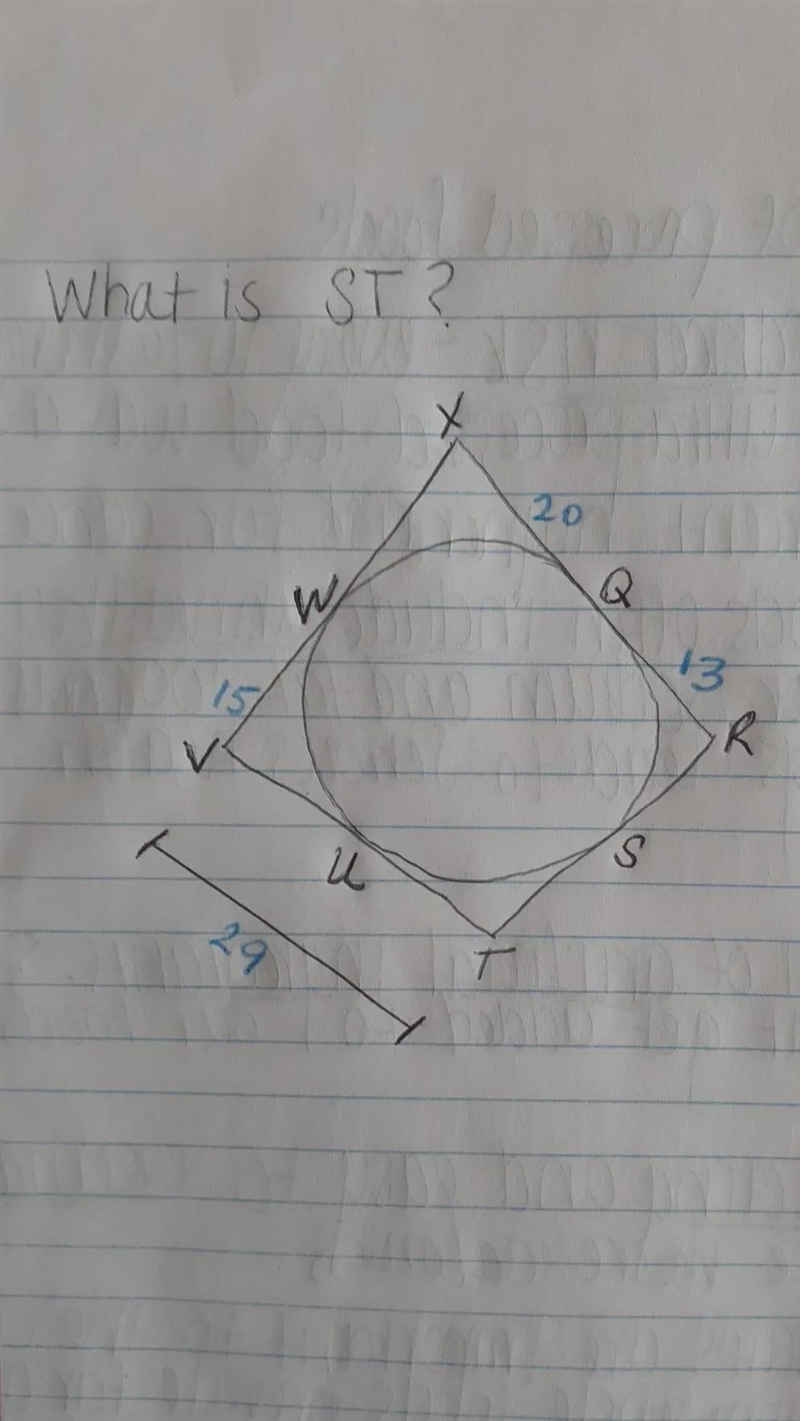 What is ST?
X
20
W
Q
15
13
V
R
U
S
29
T